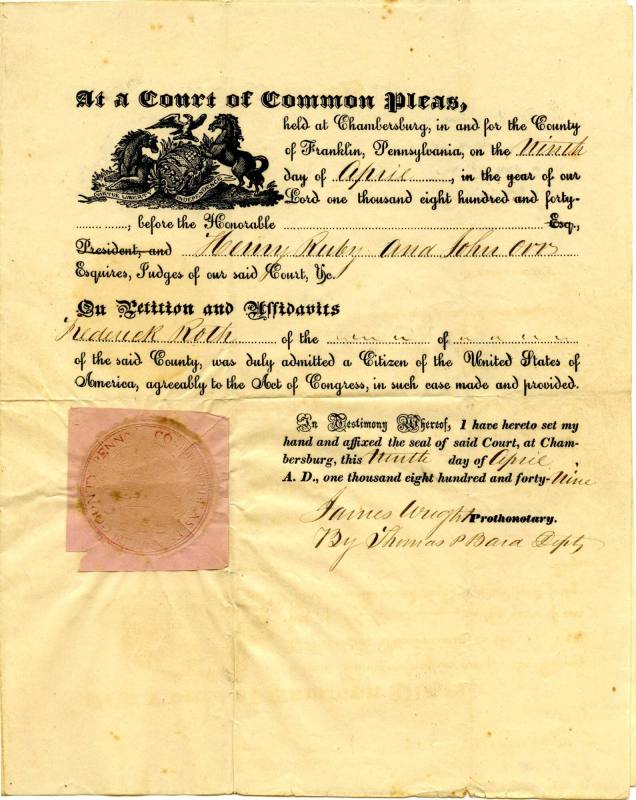 At a Court of Common Pleas,
held at Chambersburg, in and for the County
of Franklin, Pennsylvania, on the Ninth
day of April, in the year of our
Lord one thousand eight hundred and forty-
VIRTUE LIBERTY INDEPENDENCE
, before the Honorable Esq.,
President, and Henny Ruby and John Orr
Esquires, Judges of our said Court, &c.
On Petition and Affidavits
Frederick Roth of the " " " of " " " "
of the said County, was duly admitted a Citizen of the United States of
America, agreeably to the Act of Congress, in such case made and provided.
In Testimony Whereof, I have hereto set my
hand and affixed the seal of said Court, at Cham-
bersburg, this Ninth day of April,
A. D., one thousand eight hundred and forty-Nine
James Wright Prothonotary.
By Thomas P Bard Depty
PENN CO